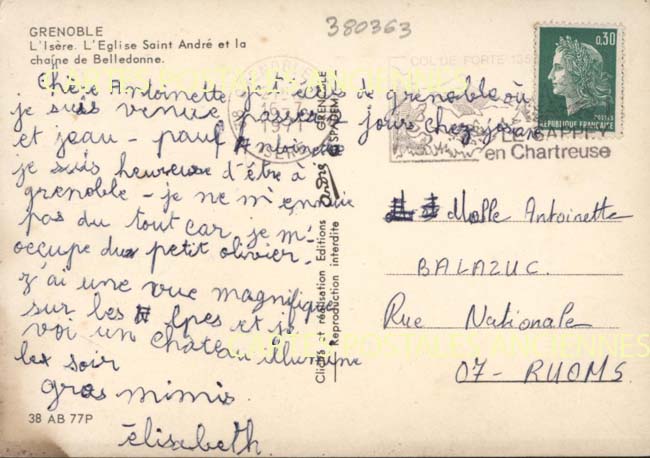 GRENOBLE
L'Isère. L'Eglise Saint André et la
chaîne de Belledonne.
380363
0,30
POSTES
REPUBLIQUE FRANÇAISE
COL DE PORTE 135
LE SAPPEY
en Chartreuse
16-7
1971
ISERE
CARTES POSTALES ANCIENNES
Chère Antoinette je t'écris de grenoble où
je suis venue passer 2 jours chez josiane
et jean-paul Antoinette
je suis heureuse d'être à
grenoble - je ne m'ennuie
pas du tout car je m'-
occupe du petit olivier.
j'ai une vue magnifique
sur les Alpes et je
voi un château illuminé
le soir
gros mimis
élisabeth
Melle Antoinette
BALAZUC.
Rue Nationale
07-RUOMS
CARTES POSTALES ANCIENNES
38 AB 77P
Cliché et réalisation Editions André GRENOBLE
Reproduction interdite